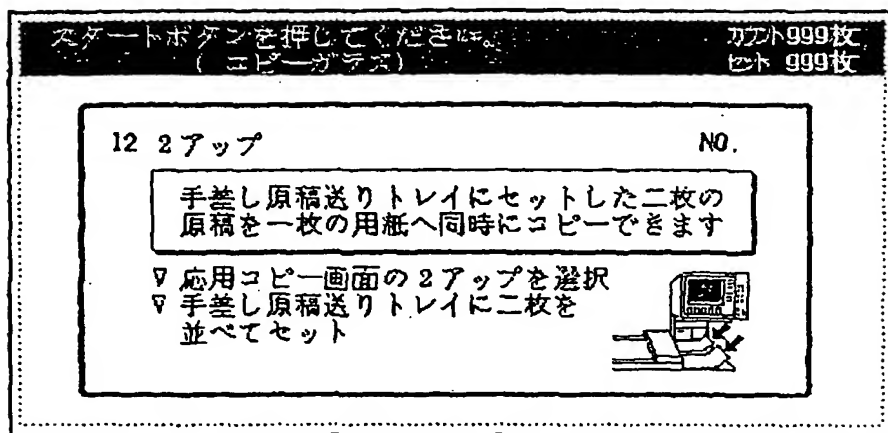 スタートボタンを押してください。 カウント999枚
(コピーガラス) セット 999枚
12 2アップ NO.
手差し原稿送りトレイにセットした二枚の
原稿を一枚の用紙へ同時にコピーできます
▽ 応用コピー画面の2アップを選択
▽ 手差し原稿送りトレイに二枚を
並べてセット